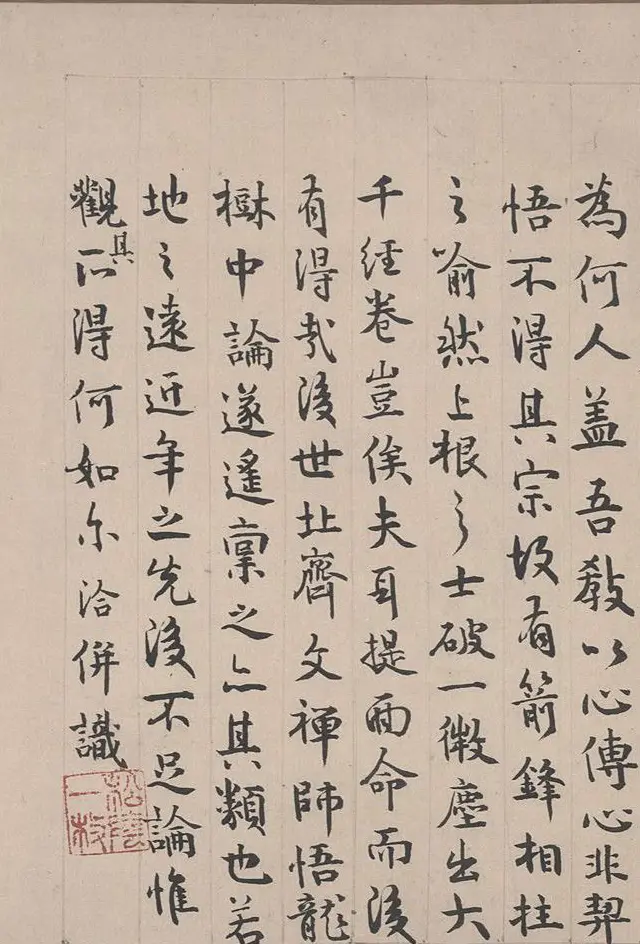 為何人盖吾教以心傳心非契
悟不得其宗故有箭鋒相拄
之喻然上根之士破一微塵出大
千經卷豈俟夫耳提面命而後
有得哉後世北齊文禅師悟龍
樹中論遂遙稟之亦其類也若
地之遠近年之先後不足論惟
觀其所得何如尔洽併識